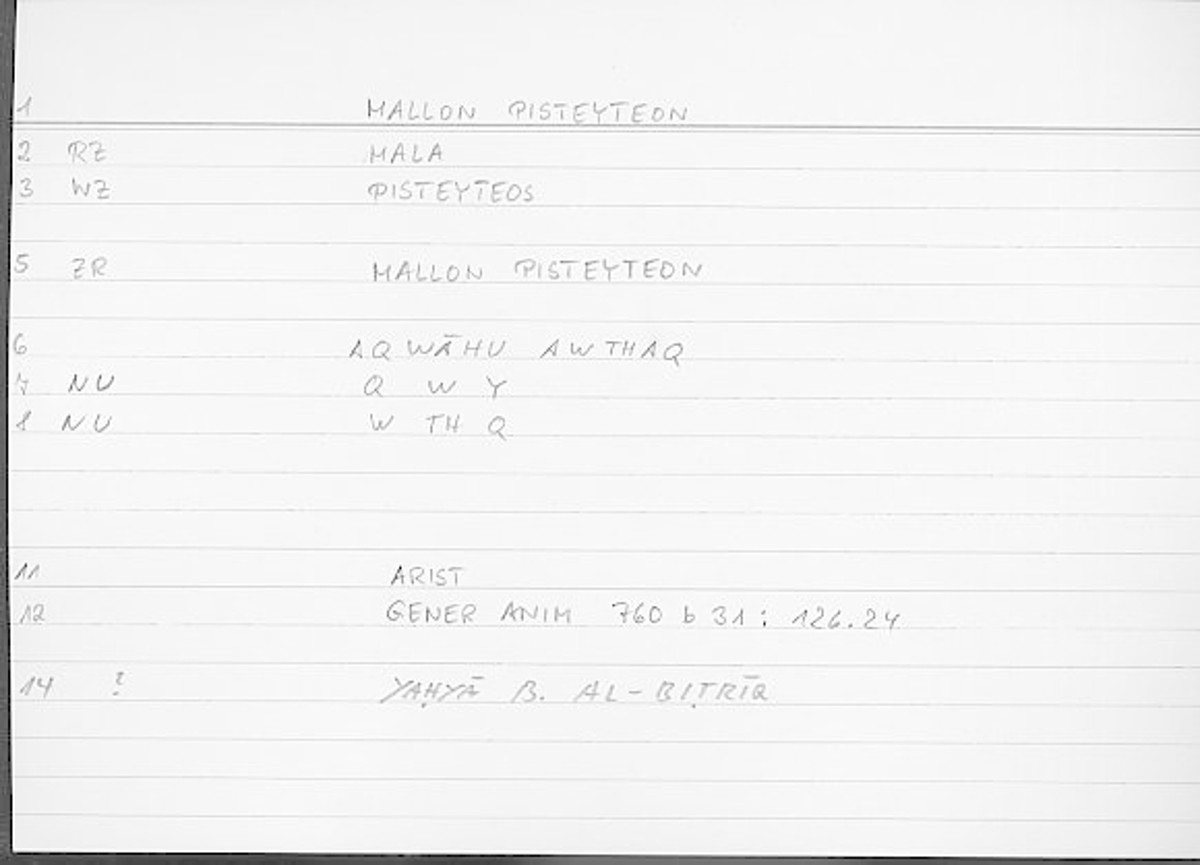 1 MALLON PISTEYTEON
2 RZ MALA
3 WZ PISTEYTEOS
5 ZR MALLON PISTEYTEON
6 AQWĀHU AWTHAQ
7 NU Q W Y
8 NU W TH Q
11 ARIST
12 GENER ANIM 760 b 31 : 126.24
14 ? YAḤYĀ B. AL-BIṬRĪQ